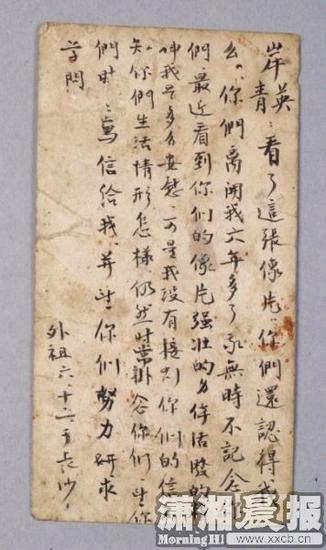 岸英
青：看了這張像片、你們還認得我
么、你們离開我六年多了我無時不記念你
們最近看到你们的像片强壮的身体活潑的
神我是多么安慰可是我没有接到你们的信
知你們生活情形怎樣、仍然时常掛念你们、望你
們时：寫信給我、并望你們努力研求
学問
外祖六、十六、于長沙、
瀟湘晨報
Morning H
www.xxcb.cn